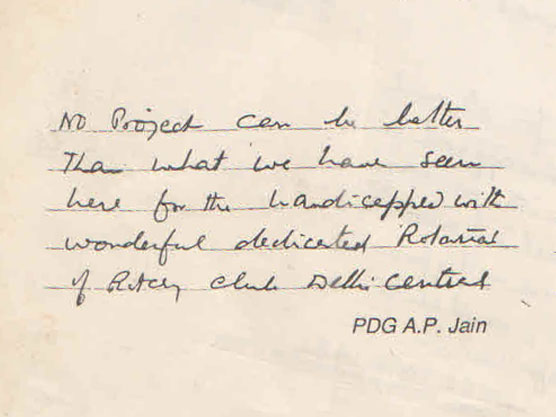 No Project can be better
Than what we have seen
here for the handicapped with
wonderful dedicated Rotarians
of Rotary club Delhi Central
PDG A.P. Jain